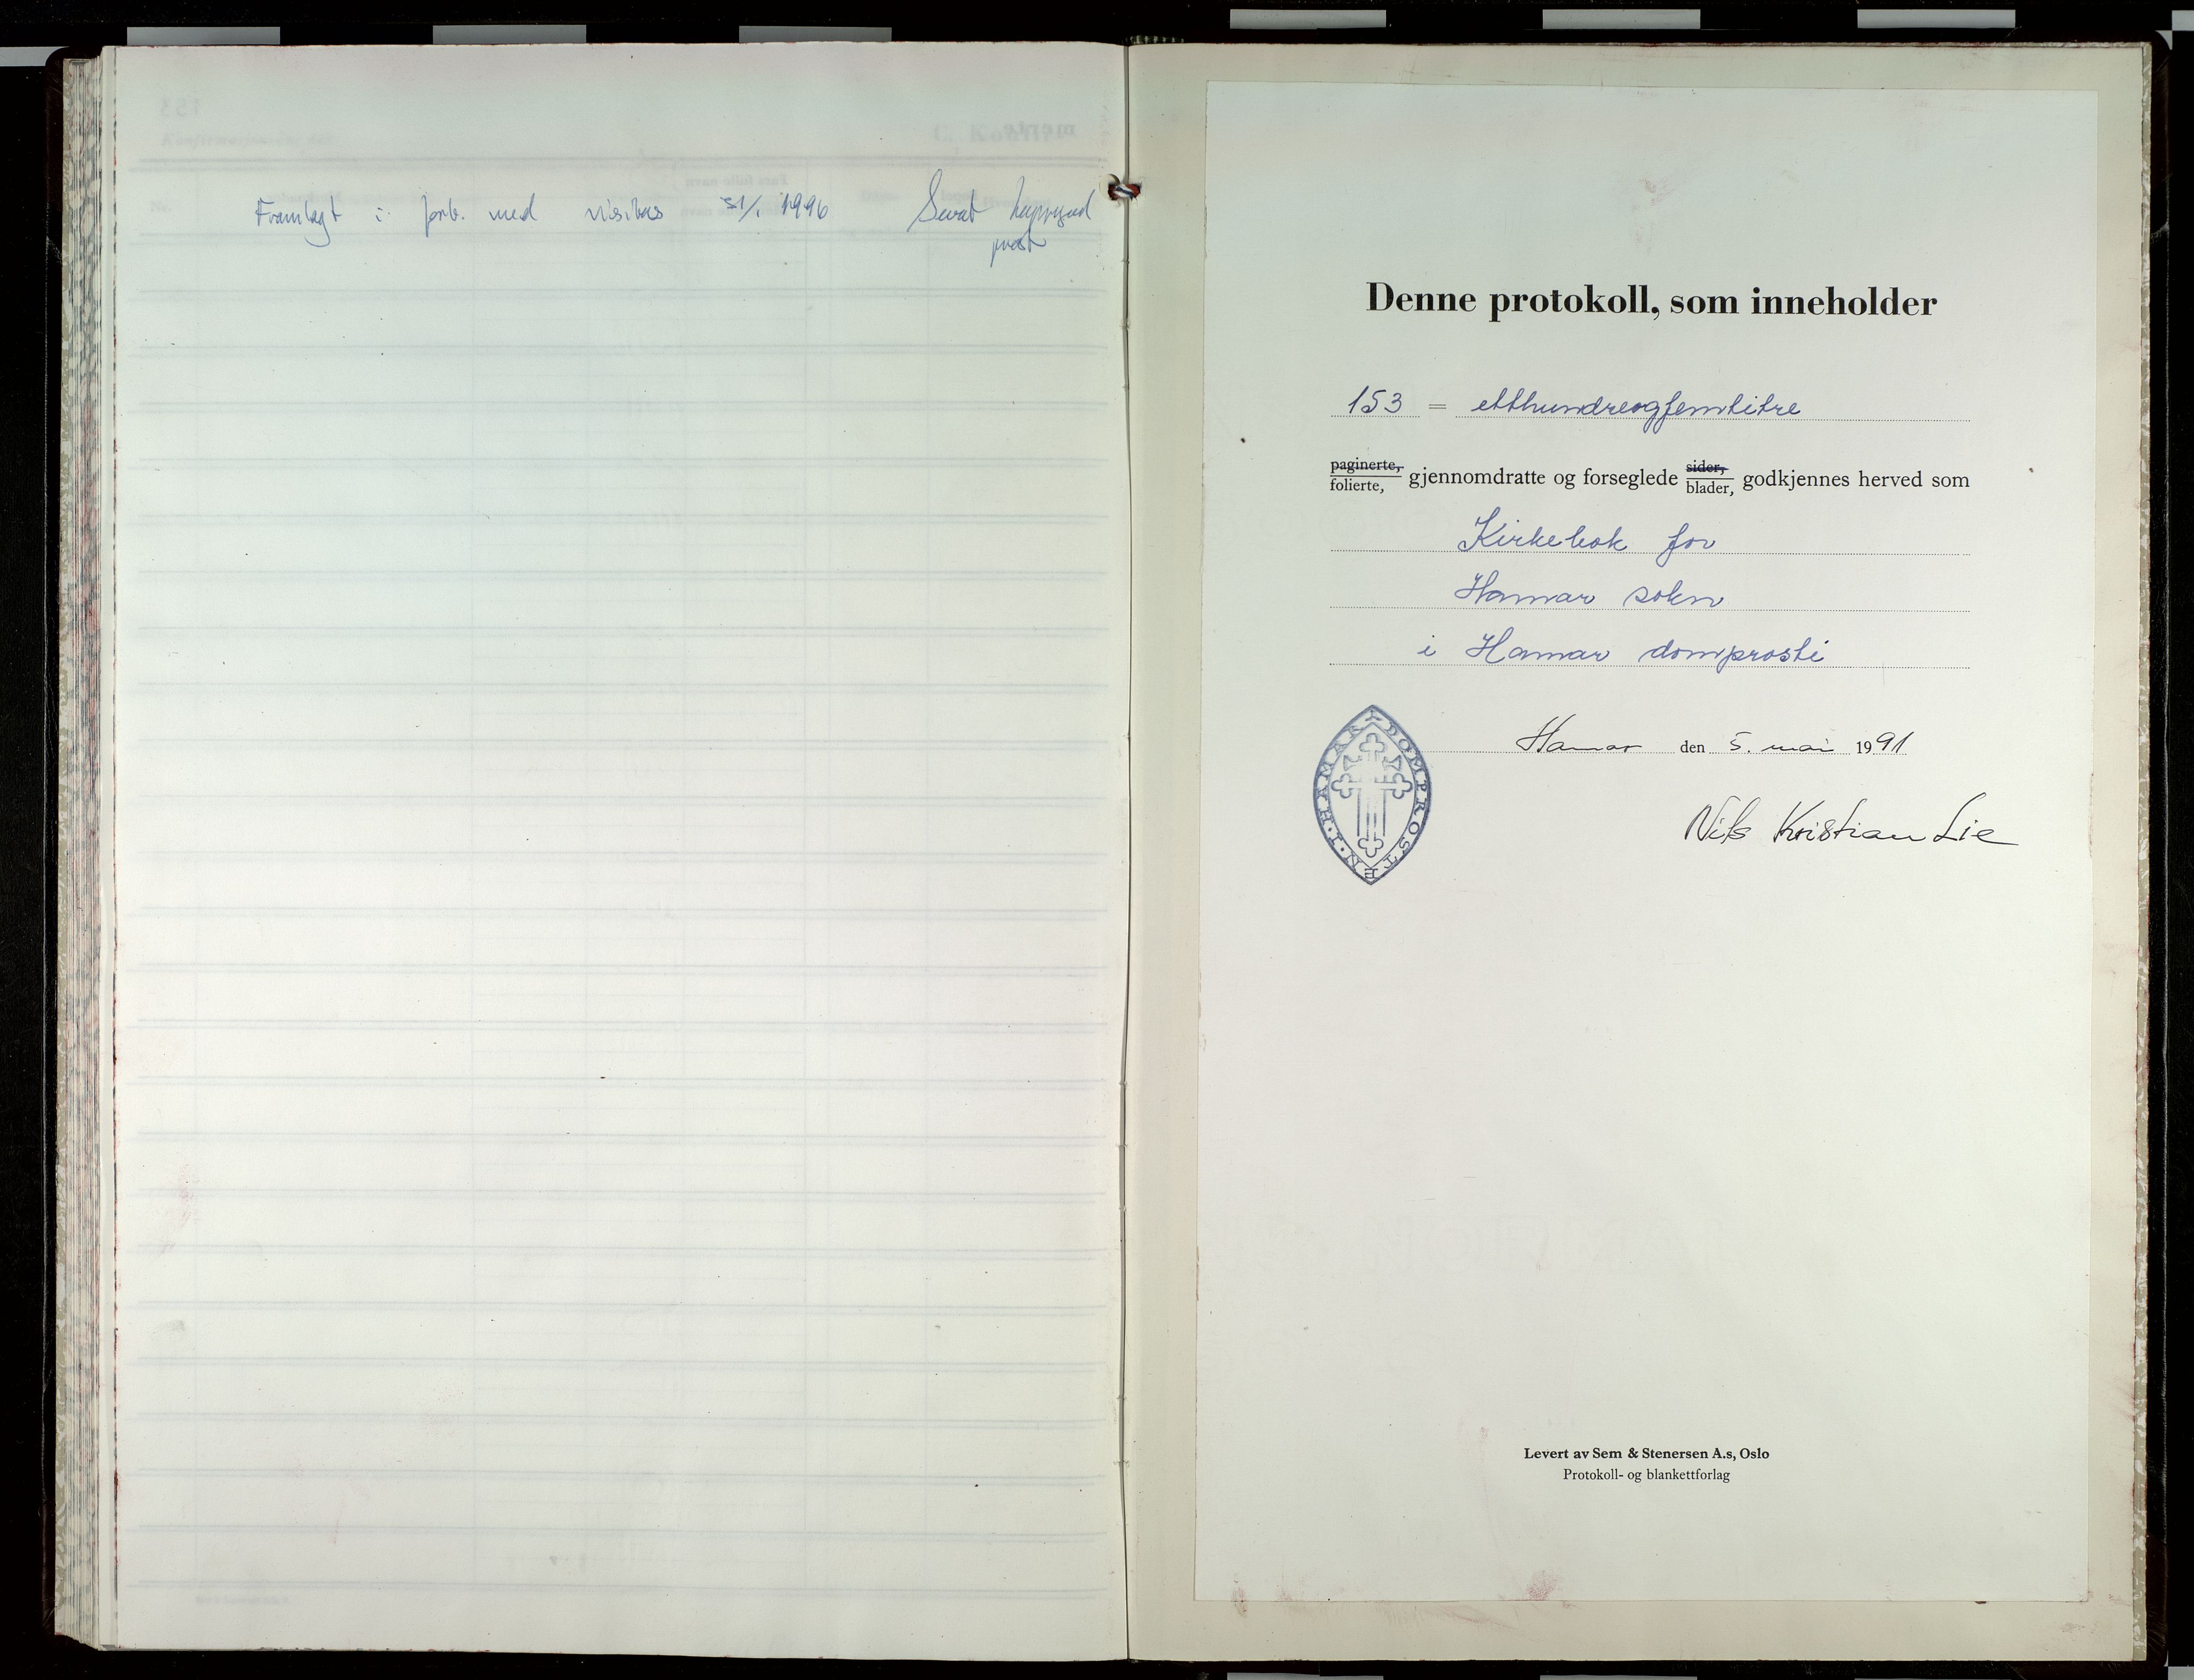 Framlagt i forb. med visitas 31/1 1996
prost
Denne protokoll, som inneholder
153 = etthundreogfemtitre
paginerte, sider,
folierte, gjennomdratte og forseglede blader, godkjennes herved som
Kirkebok for
Hamar sokn
i Hamar domprosti
Hamar den 5. mai 1991
HAMAR DOMPROSTI
Nils Kristian Lie
Levert av Sem & Stenersen A.s, Oslo
Protokoll- og blankettforlag